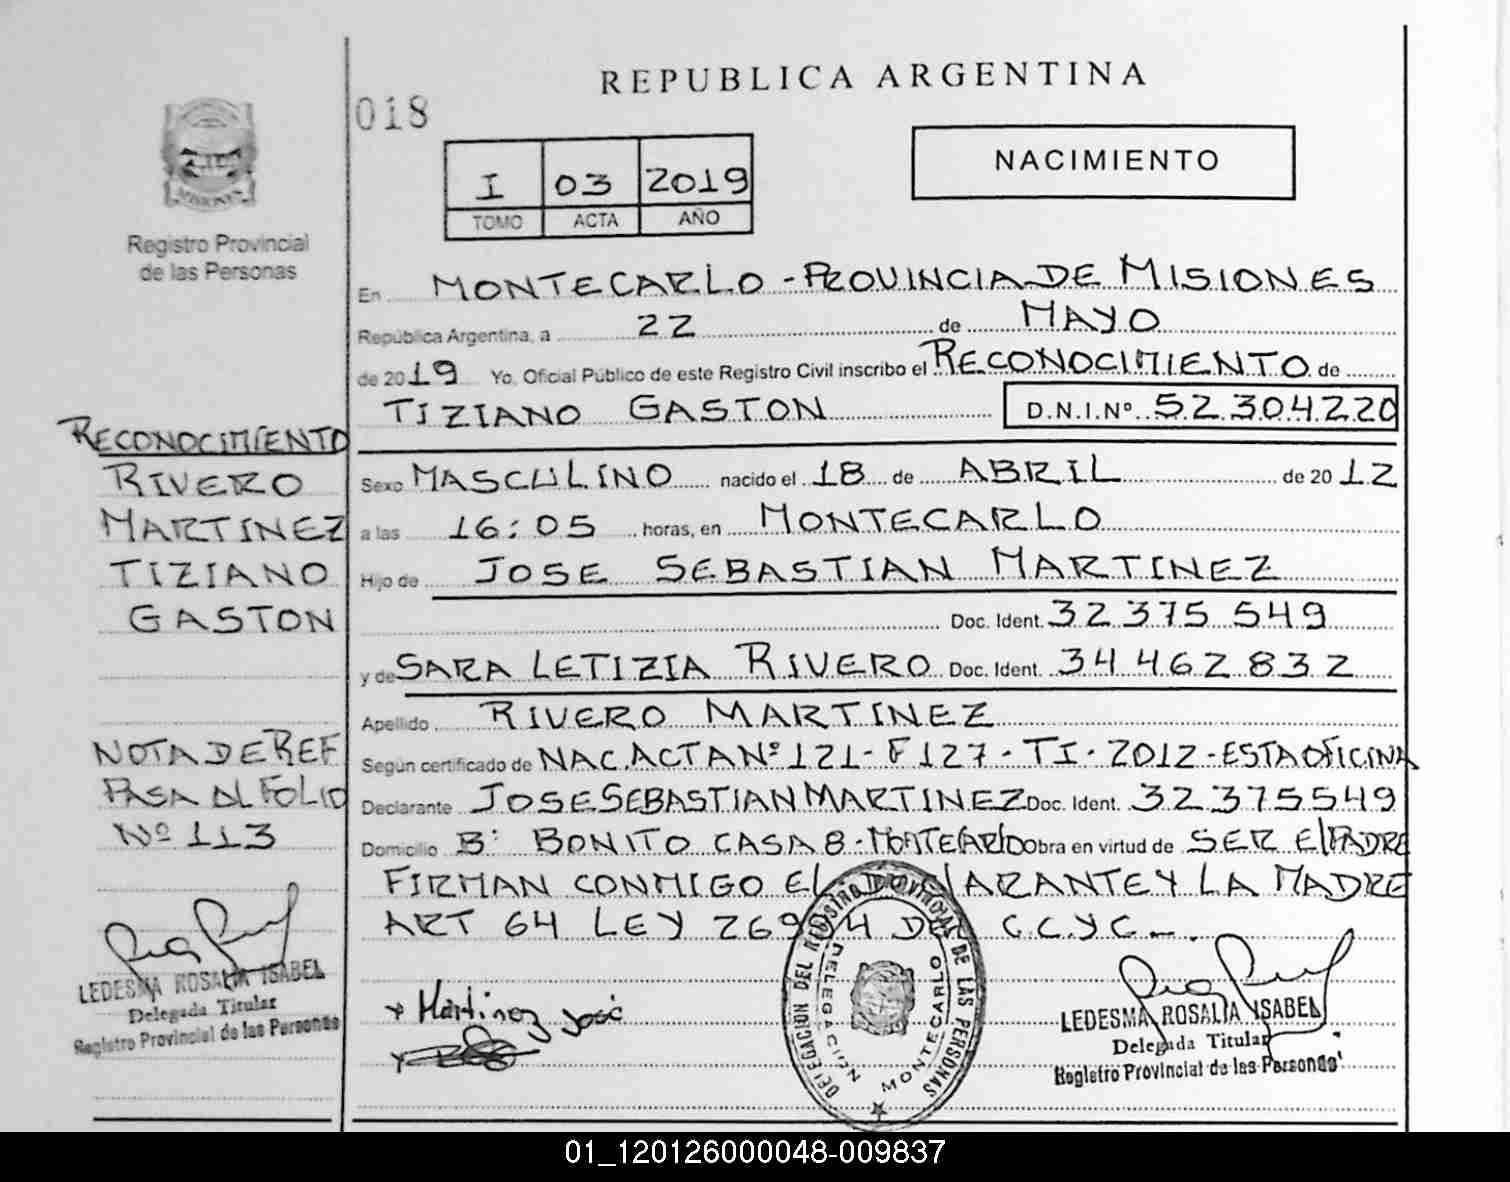 REPUBLICA ARGENTINA
018
NACIMIENTO
I 03 2019
TOMO ACTA AÑO
MISIONES
Registro Provincial
de las Personas
En MONTECARLO - PROVINCIA DE MISIONES
República Argentina, a 22 de MAYO
de 2019 Yo, Oficial Público de este Registro Civil inscribo el RECONOCIMIENTO de
TIZIANO GASTON D.N.I.Nº 52.304.220
Sexo MASCULINO nacido el 18 de ABRIL de 2012
a las 16:05 horas, en MONTECARLO
Hijo de JOSE SEBASTIAN MARTINEZ
Doc. Ident. 32 375 549
y de SARA LETIZIA RIVERO Doc. Ident. 34 462 832
Apellido RIVERO MARTINEZ
Según certificado de NAC. ACTA Nº 121 - F 127 - TI - 2012 - ESTA OFICINA
Declarante JOSE SEBASTIAN MARTINEZ Doc. Ident. 32 375549
Domicilio Bº BONITO CASA 8 - MONTECARLO Obra en virtud de SER El PADRE
FIRMAN CONMIGO EL DECLARANTE Y LA MADRE
ART 64 LEY 26994 DEL C.C.Y C -.
RECONOCIMIENTO
RIVERO
MARTINEZ
TIZIANO
GASTON
NOTA DE REF
PASA AL FOLIO
Nº 113
LEDESMA ROSALIA ISABEL
Delegada Titular
Registro Provincial de las Personas
Martinez José
DELEGACION DEL REGISTRO PROVINCIAL DE LAS PERSONAS
DELEGACION MONTECARLO
LEDESMA ROSALIA ISABEL
Delegada Titular
Registro Provincial de las Personas
01_120126000048-009837